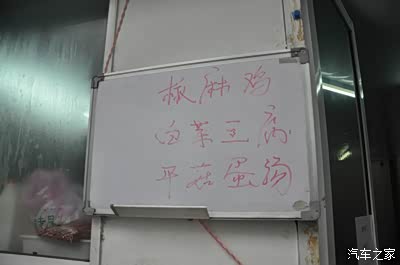 椒麻鸡
白菜豆腐
平菇蛋汤
汽车之家